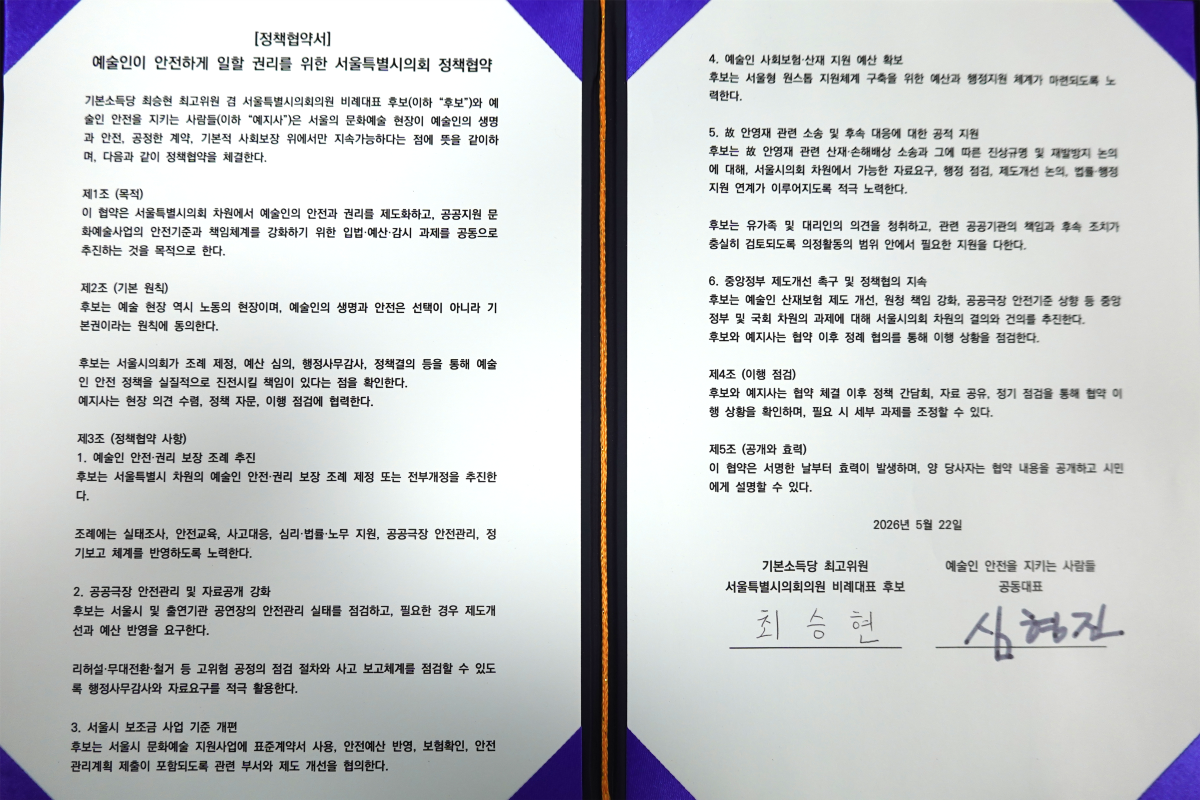 [정책협약서]
예술인이 안전하게 일할 권리를 위한 서울특별시의회 정책협약
기본소득당 최승현 최고위원 겸 서울특별시의회의원 비례대표 후보(이하 “후보”)와 예
술인 안전을 지키는 사람들(이하 “예지사”)은 서울의 문화예술 현장이 예술인의 생명
과 안전, 공정한 계약, 기본적 사회보장 위에서만 지속가능하다는 점에 뜻을 같이하
며, 다음과 같이 정책협약을 체결한다.
제1조 (목적)
이 협약은 서울특별시의회 차원에서 예술인의 안전과 권리를 제도화하고, 공공지원 문
화예술사업의 안전기준과 책임체계를 강화하기 위한 입법·예산·감시 과제를 공동으로
추진하는 것을 목적으로 한다.
제2조 (기본 원칙)
후보는 예술 현장 역시 노동의 현장이며, 예술인의 생명과 안전은 선택이 아니라 기
본권이라는 원칙에 동의한다.
후보는 서울시의회가 조례 제정, 예산 심의, 행정사무감사, 정책결의 등을 통해 예술
인 안전 정책을 실질적으로 진전시킬 책임이 있다는 점을 확인한다.
예지사는 현장 의견 수렴, 정책 자문, 이행 점검에 협력한다.
제3조 (정책협약 사항)
1. 예술인 안전·권리 보장 조례 추진
후보는 서울특별시 차원의 예술인 안전·권리 보장 조례 제정 또는 전부개정을 추진한
다.
조례에는 실태조사, 안전교육, 사고대응, 심리·법률·노무 지원, 공공극장 안전관리, 정
기보고 체계를 반영하도록 노력한다.
2. 공공극장 안전관리 및 자료공개 강화
후보는 서울시 및 출연기관 공연장의 안전관리 실태를 점검하고, 필요한 경우 제도개
선과 예산 반영을 요구한다.
리허설·무대전환·철거 등 고위험 공정의 점검 절차와 사고 보고체계를 점검할 수 있도
록 행정사무감사와 자료요구를 적극 활용한다.
3. 서울시 보조금 사업 기준 개편
후보는 서울시 문화예술 지원사업에 표준계약서 사용, 안전예산 반영, 보험확인, 안전
관리계획 제출이 포함되도록 관련 부서와 제도 개선을 협의한다.
4. 예술인 사회보험·산재 지원 예산 확보
후보는 서울형 원스톱 지원체계 구축을 위한 예산과 행정지원 체계가 마련되도록 노
력한다.
5. 故 안영재 관련 소송 및 후속 대응에 대한 공적 지원
후보는 故 안영재 관련 산재·손해배상 소송과 그에 따른 진상규명 및 재발방지 논의
에 대해, 서울시의회 차원에서 가능한 자료요구, 행정 점검, 제도개선 논의, 법률·행정
지원 연계가 이루어지도록 적극 노력한다.
후보는 유가족 및 대리인의 의견을 청취하고, 관련 공공기관의 책임과 후속 조치가
충실히 검토되도록 의정활동의 범위 안에서 필요한 지원을 다한다.
6. 중앙정부 제도개선 촉구 및 정책협의 지속
후보는 예술인 산재보험 제도 개선, 원청 책임 강화, 공공극장 안전기준 상향 등 중앙
정부 및 국회 차원의 과제에 대해 서울시의회 차원의 결의와 건의를 추진한다.
후보와 예지사는 협약 이후 정례 협의를 통해 이행 상황을 점검한다.
제4조 (이행 점검)
후보와 예지사는 협약 체결 이후 정책 간담회, 자료 공유, 정기 점검을 통해 협약 이
행 상황을 확인하며, 필요 시 세부 과제를 조정할 수 있다.
제5조 (공개와 효력)
이 협약은 서명한 날부터 효력이 발생하며, 양 당사자는 협약 내용을 공개하고 시민
에게 설명할 수 있다.
2026년 5월 22일
기본소득당 최고위원
서울특별시의회의원 비례대표 후보
최승현
예술인 안전을 지키는 사람들
공동대표
심형진